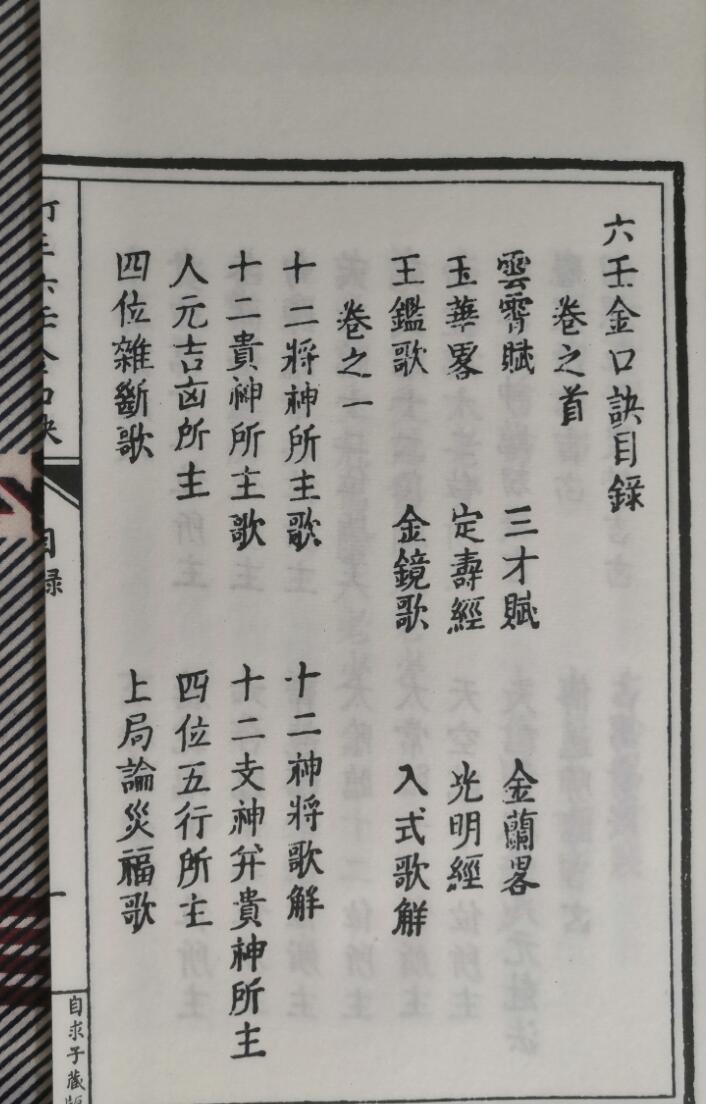 六壬金口訣目錄
卷之首
雲霄賦 三才賦 金蘭畧
玉華畧 定壽經 光明經
玉鑑歌 金鏡歌 入式歌解
卷之一
十二將神所主歌 十二神將歌解
十二貴神所主歌 十二支神并貴神所主
人元吉凶所主 四位五行所主
四位雜斷歌 上局論災福歌
六壬金口訣
目錄
一
自求子藏版